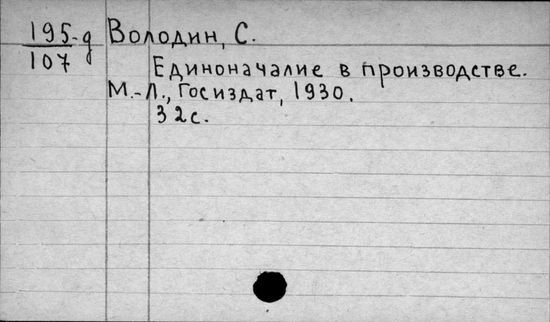 195-д
107
Володин, С.
Единоначалие в производстве.
М.-Л., Госиздат, 1930.
32с.